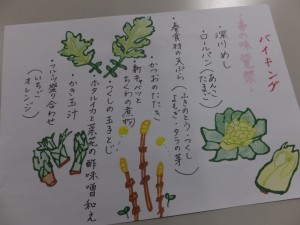 バイキング
春の味覚祭
・深川めし
・白ールパン(あんこ)
・春食材の天ぷら(ふきのとう・つくし
よもぎ・タラの芽)
・かつおのたたき
・新キャベツとちくわの煮物
・つくしの玉子とじ
・ホタルイカと菜花の酢味噌和え
・かき玉汁
・フルーツ盛り合わせ
(いちご
オレンジ)